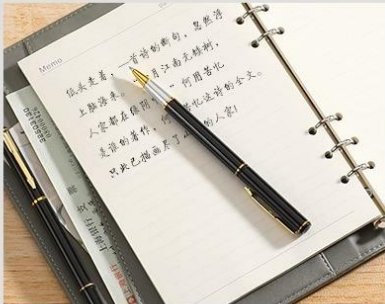 Memo
低头走着，一首诗的断句，忽然浮
上脑海来。 月江南无绿树，
人家都在绿阴 何用苦忆
是谁的著作，何 苦忆这诗的全文。
只此已描画尽了 的人家！
上海银行